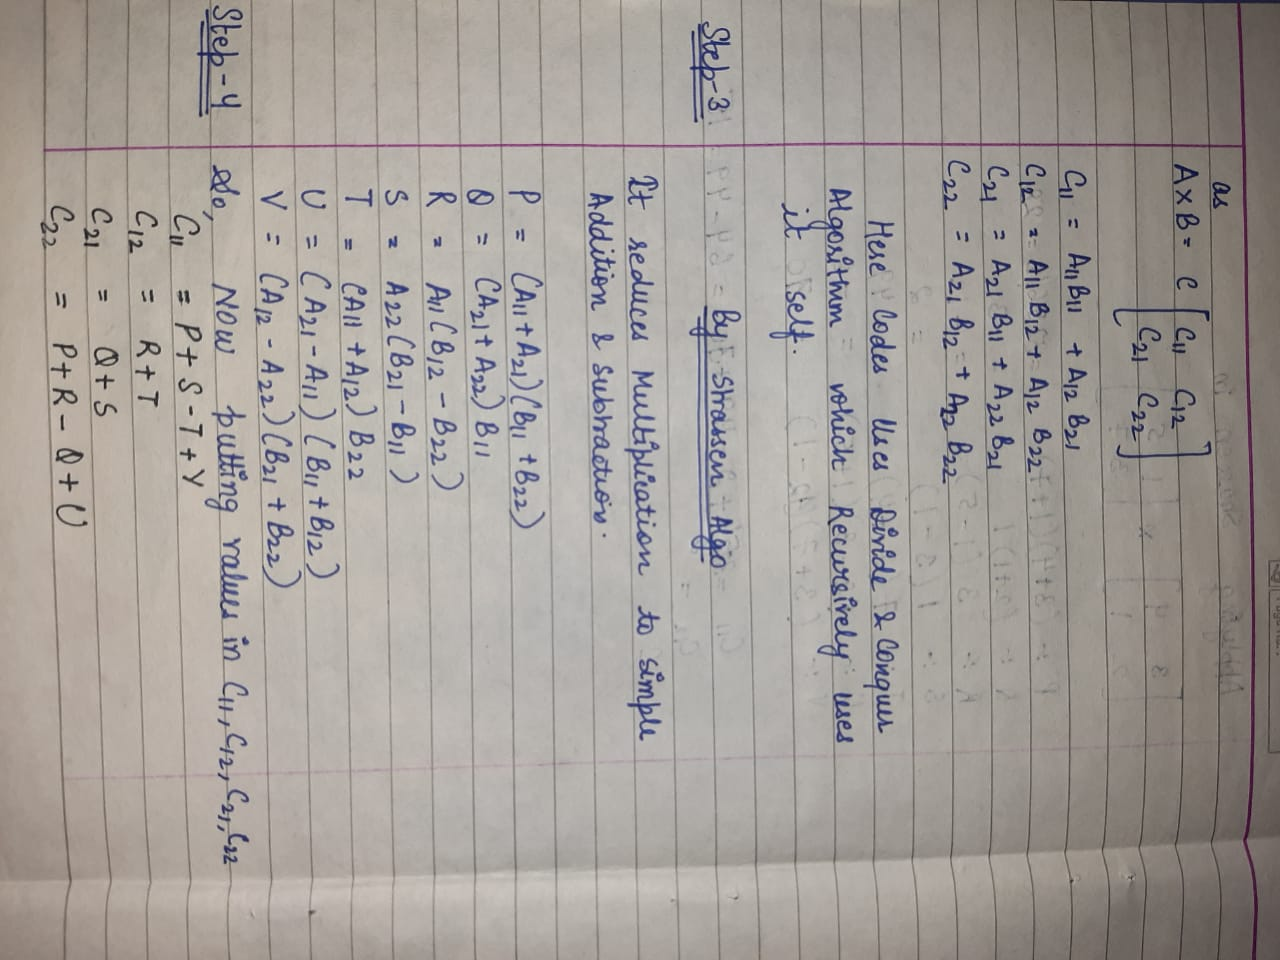 as
A×B = C [ C11 C12
C21 C22 ]
C11 = A11B11 + A12 B21
C12 = A11 B12 + A12 B22
C21 = A21 B11 + A22 B21
C22 = A21 B12 + A22 B22
Here Codes Uses Divide & Conquer
Algorithm which Recursively uses
it self.
Step-3 By Strassen Algo
It reduces Multiplication to simple
Addition & Subtraction.
P = (A11 + A21)(B11 + B22)
Q = (A21 + A22) B11
R = A11(B12 - B22)
S = A22(B21 - B11)
T = (A11 + A12) B22
U = (A21 - A11)(B11 + B12)
V = (A12 - A22)(B21 + B22)
Step-4 So, Now putting values in C11, C12, C21, C22
C11 = P + S - T + V
C12 = R + T
C21 = Q + S
C22 = P + R - Q + U